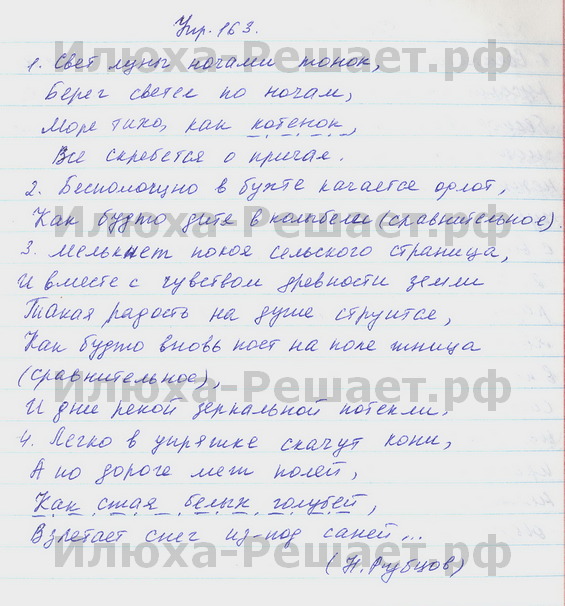 Упр. 163.
1. Свет луны ночами тонок,
Берег светел по ночам,
Море тихо, как котенок,
Все скребется о причал.
2. Беспомощно в бухте качается флот,
Как будто дитя в колыбели (сравнительное).
3. Мелькнет покоя сельского страница,
И вместе с чувством древности земли
Такая радость на душе струится,
Как будто вновь поет на поле жница
(сравнительное),
И дни рекой зеркальной потекли.
4. Легко в упряжке скачут кони,
А по дороге меж полей,
Как стая белых голубей,
Взлетает снег из-под саней...
(Н. Рубцов)
Илюха-Решает.рф
Илюха-Решает.рф
Илюха-Решает.рф
Илюха-Решает.рф